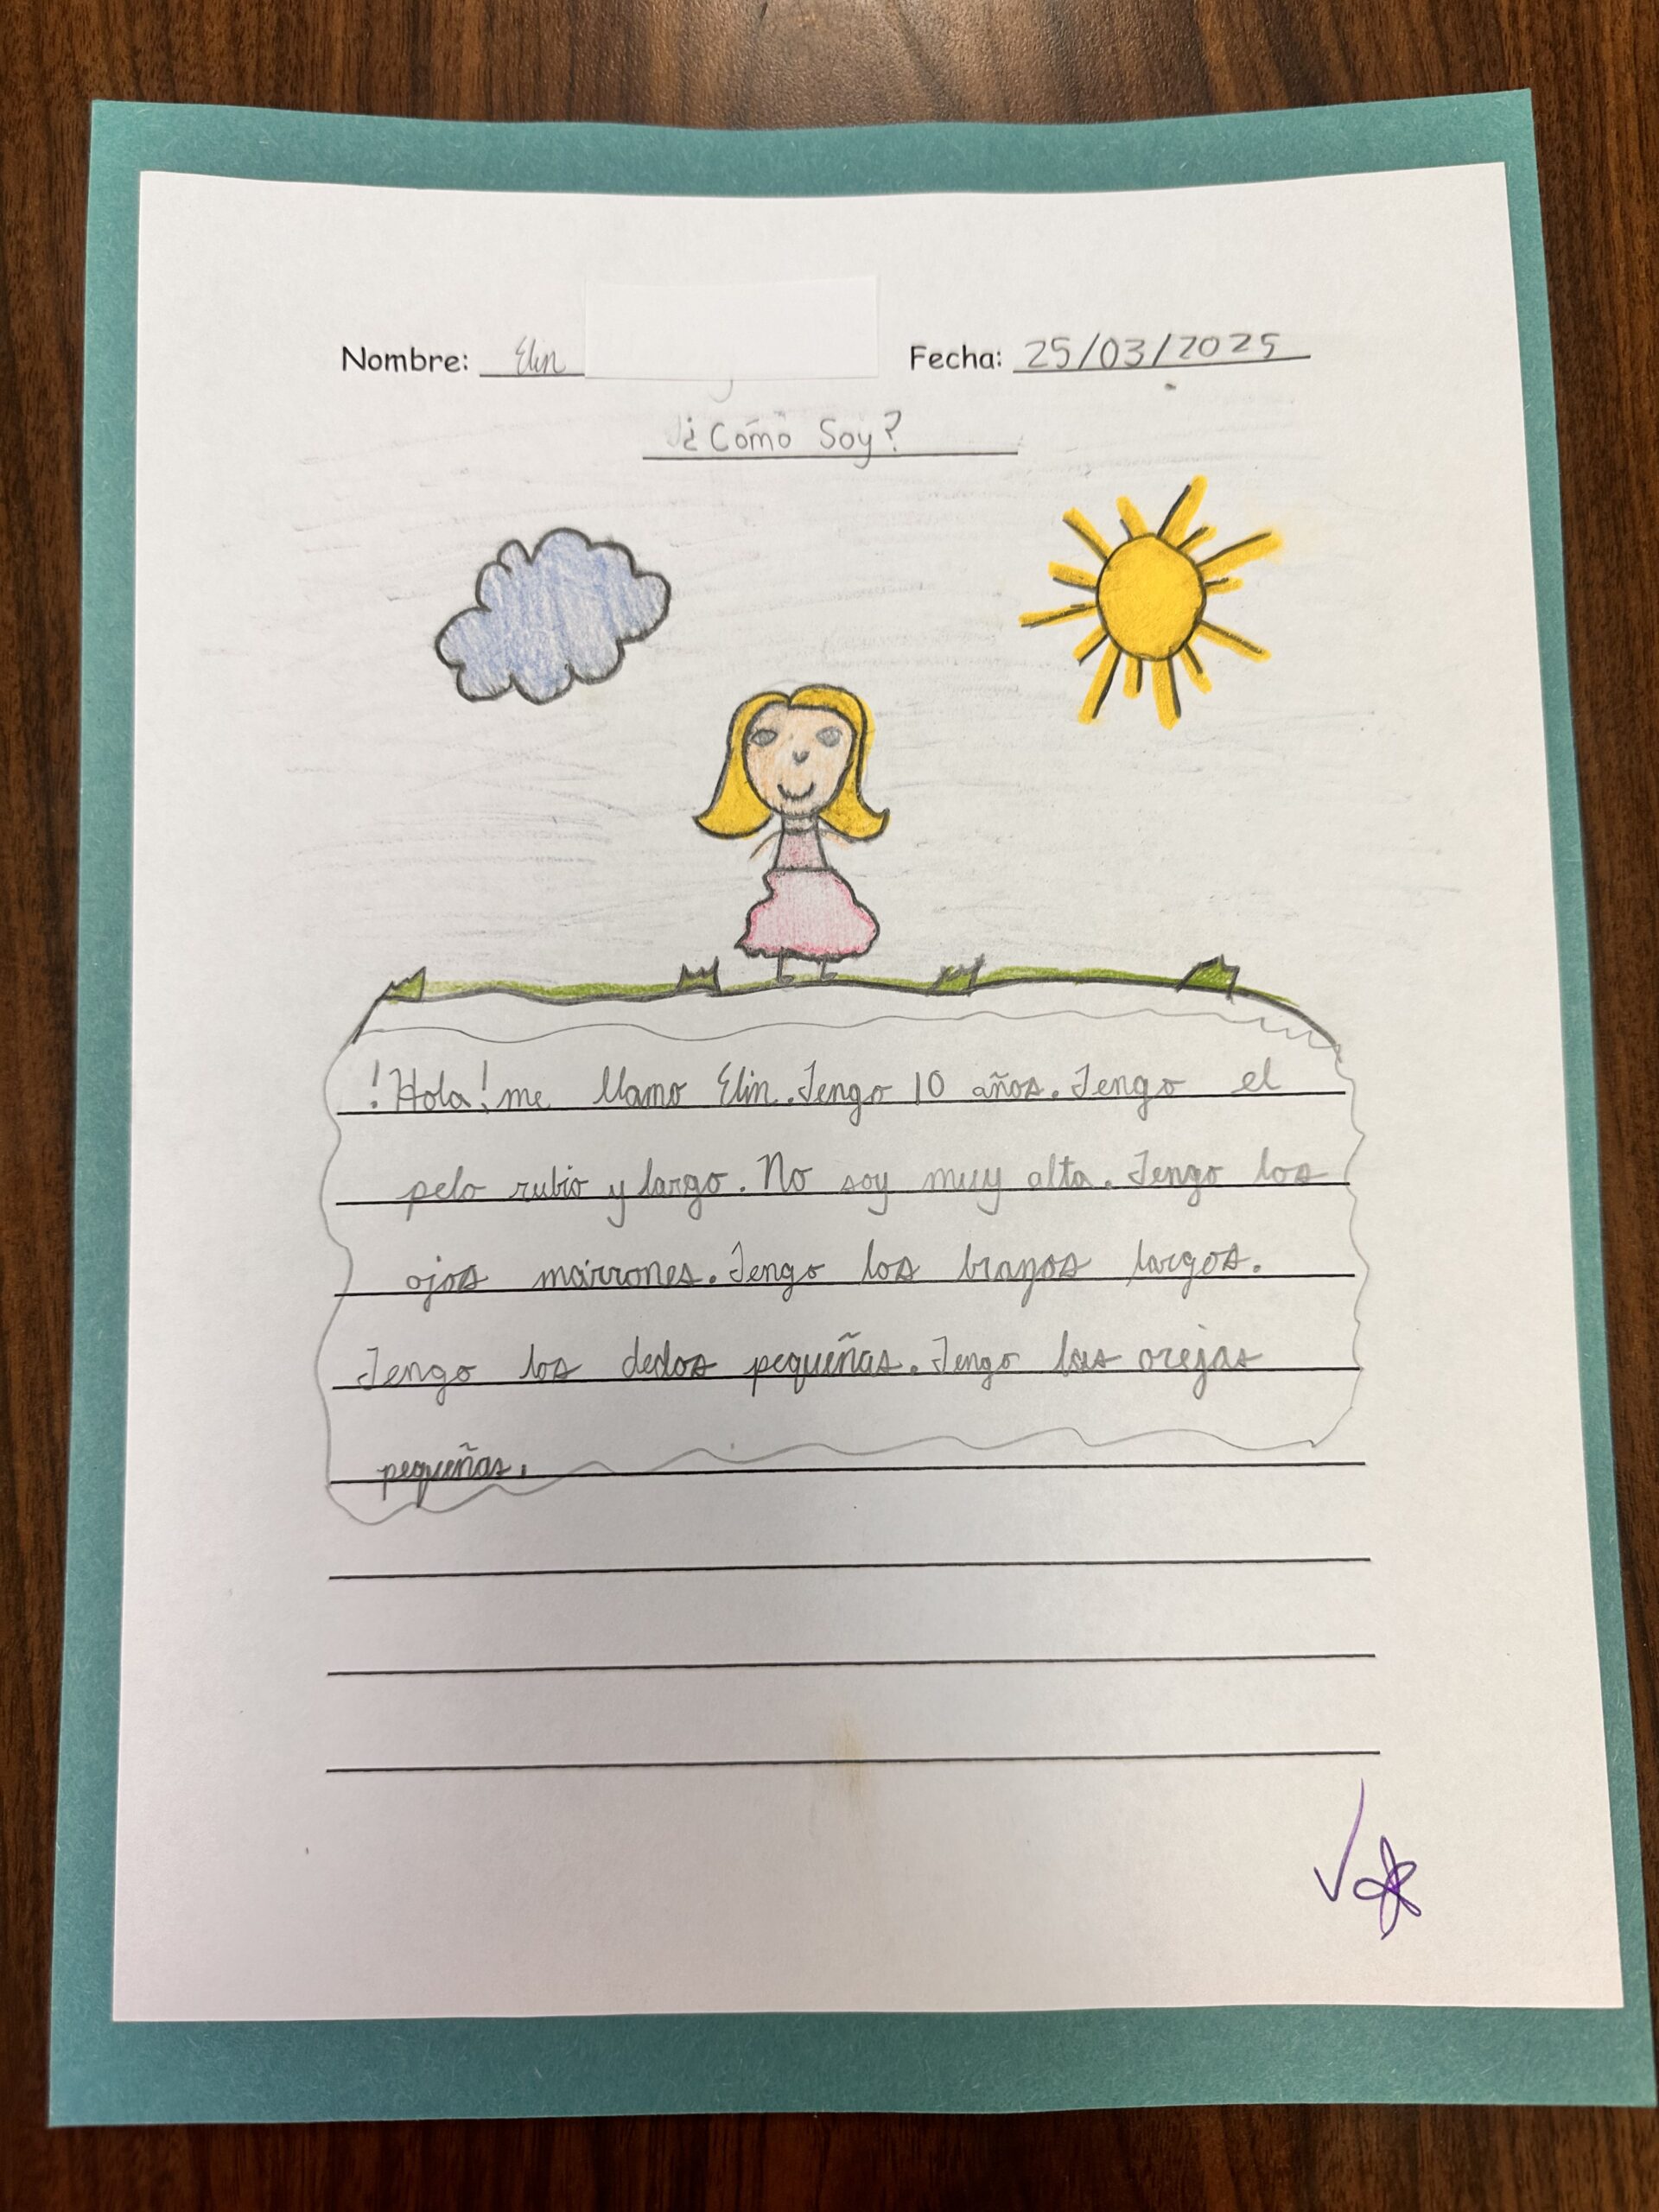 Nombre: Elin Fecha: 25/03/2025
¿Cómo Soy?
!Hola! me llamo Elin. Tengo 10 años. Tengo el
pelo rubio y largo. No soy muy alta. Tengo los
ojos marrones. Tengo los brazos largos.
Tengo los dedos pequeñas. Tengo las orejas
pequeñas.